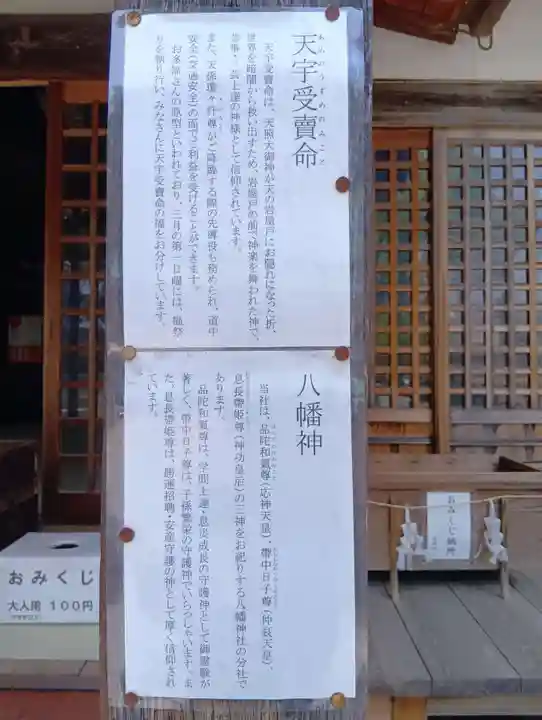 天宇受賣命
あめのうずめのみこと
天宇受賣命は、天照大御神が天の岩屋戸にお隠れになった折、
世界を暗闇から救い出すため、岩屋戸の前で神楽を舞われた神で、
芸事・芸上達の神様として信仰されています。
また、天孫瓊々杵尊がご降臨する際の先導役も務められ、道中
安全(交通安全)の面でご利益を受けることができます。
お多福さんの原型といわれており、二月の第一日曜には、福祭
りを執り行い、みなさんに天宇受賣命の福をお分けしています。
八幡神
当社は、品陀和氣尊(応神天皇)・帯中日子尊(仲哀天皇)、
息長帶姫尊(神功皇后)の三神をお祀りする八幡神社の分社で
あります。
品陀和氣尊は、学問上達・息災成長の守護神として御霊験が
著しく、帯中日子尊は、子孫繁栄の守護神でいらっしゃいます。ま
た、息長帶姫尊は、勝運招聘・安産守護の神として厚く信仰され
ています。
おみくじ
大人用 100円
おみくじ結所